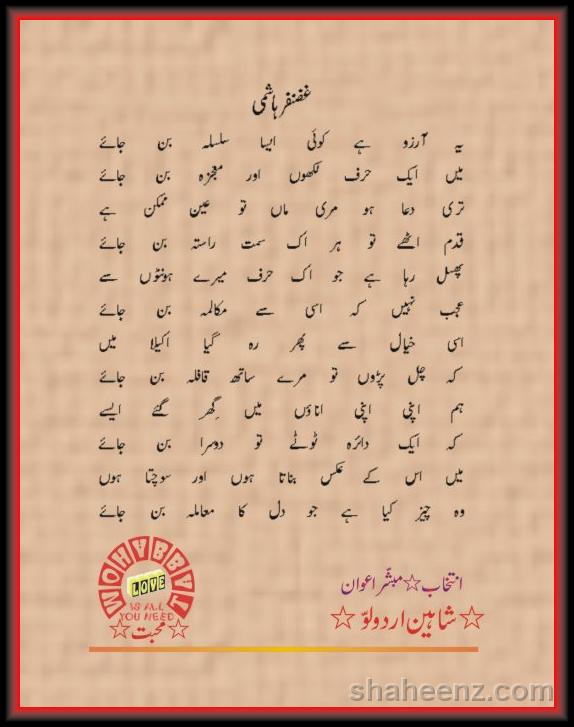 غضنفر ہاشمی
یہ آرزو ہے کوئی ایسا سلسلہ بن جائے
میں ایک حرف لکھوں اور معجزہ بن جائے
تری دعا ہو مری ماں تو عین ممکن ہے
قدم اٹھے تو ہر اک سمت راستہ بن جائے
پھسل رہا ہے جو اک حرف میرے ہونٹوں سے
عجب نہیں کہ اسی سے مکالمہ بن جائے
اسی خیال سے پھر رہ گیا اکیلا میں
کہ چل پڑوں تو مرے ساتھ قافلہ بن جائے
ہم اپنی اپنی اناؤں میں گِھر گئے ایسے
کہ ایک دائرہ ٹوٹے تو دوسرا بن جائے
میں اس کے عکس بناتا ہوں اور سوچتا ہوں
وہ چیز کیا ہے جو دل کا معاملہ بن جائے
انتخاب☆مبشّر اعوان
☆شاہین اردو لوّ☆
LOVE
IS ALL
YOU NEED
☆محبت☆
shaheenz.com